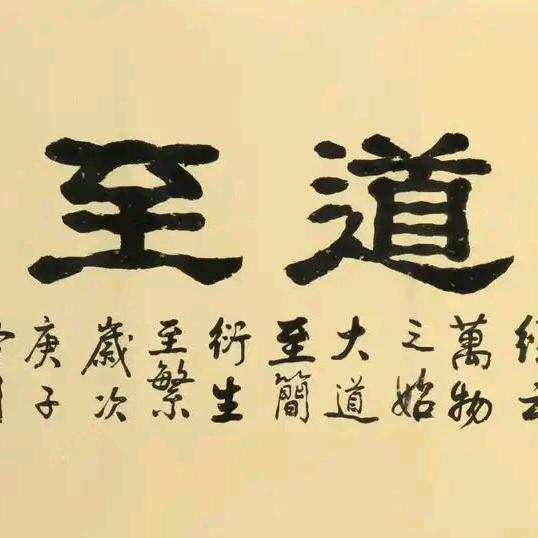 道至
萬物
之始
大道
至簡
衍生
至繁
歲次
庚子